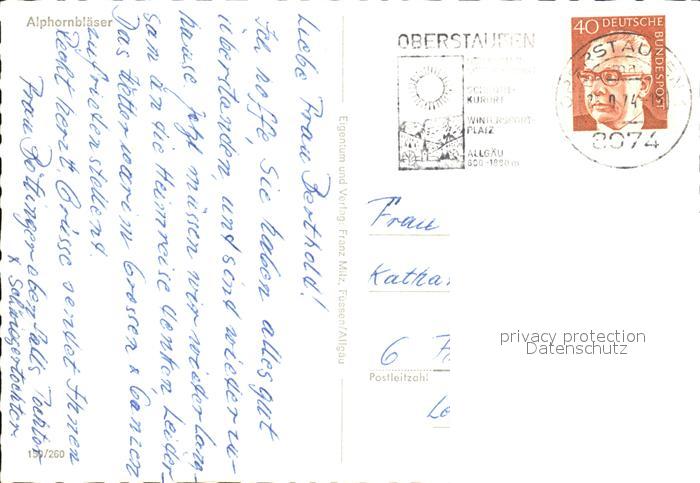 Alphornbläser
Liebe Frau Berthold!
Ich hoffe, Sie haben alles gut
überstanden, und sind wieder zu-
hause. Jetzt müssen wir wieder lang-
sam an die Heimreise denken. Leider
Das Wetter war im Grossen & Ganzen
zufriedenstellent.
Recht herzl. Grüsse sendet Ihnen
Frau ebenfalls Tochter
& Schwigertochter
150/260
Eigentum und Verlag: Franz Milz, Füssen/Allgäu
OBERSTAUFEN
SCHROTH-
KURORT
WINTERSPORT-
PLATZ
ALLGÄU
800-1800 m
40 DEUTSCHE
BUNDESPOST
OBERSTAUFEN
8974
Frau
Katha
6 F
Postleitzahl
privacy protection
Datenschutz